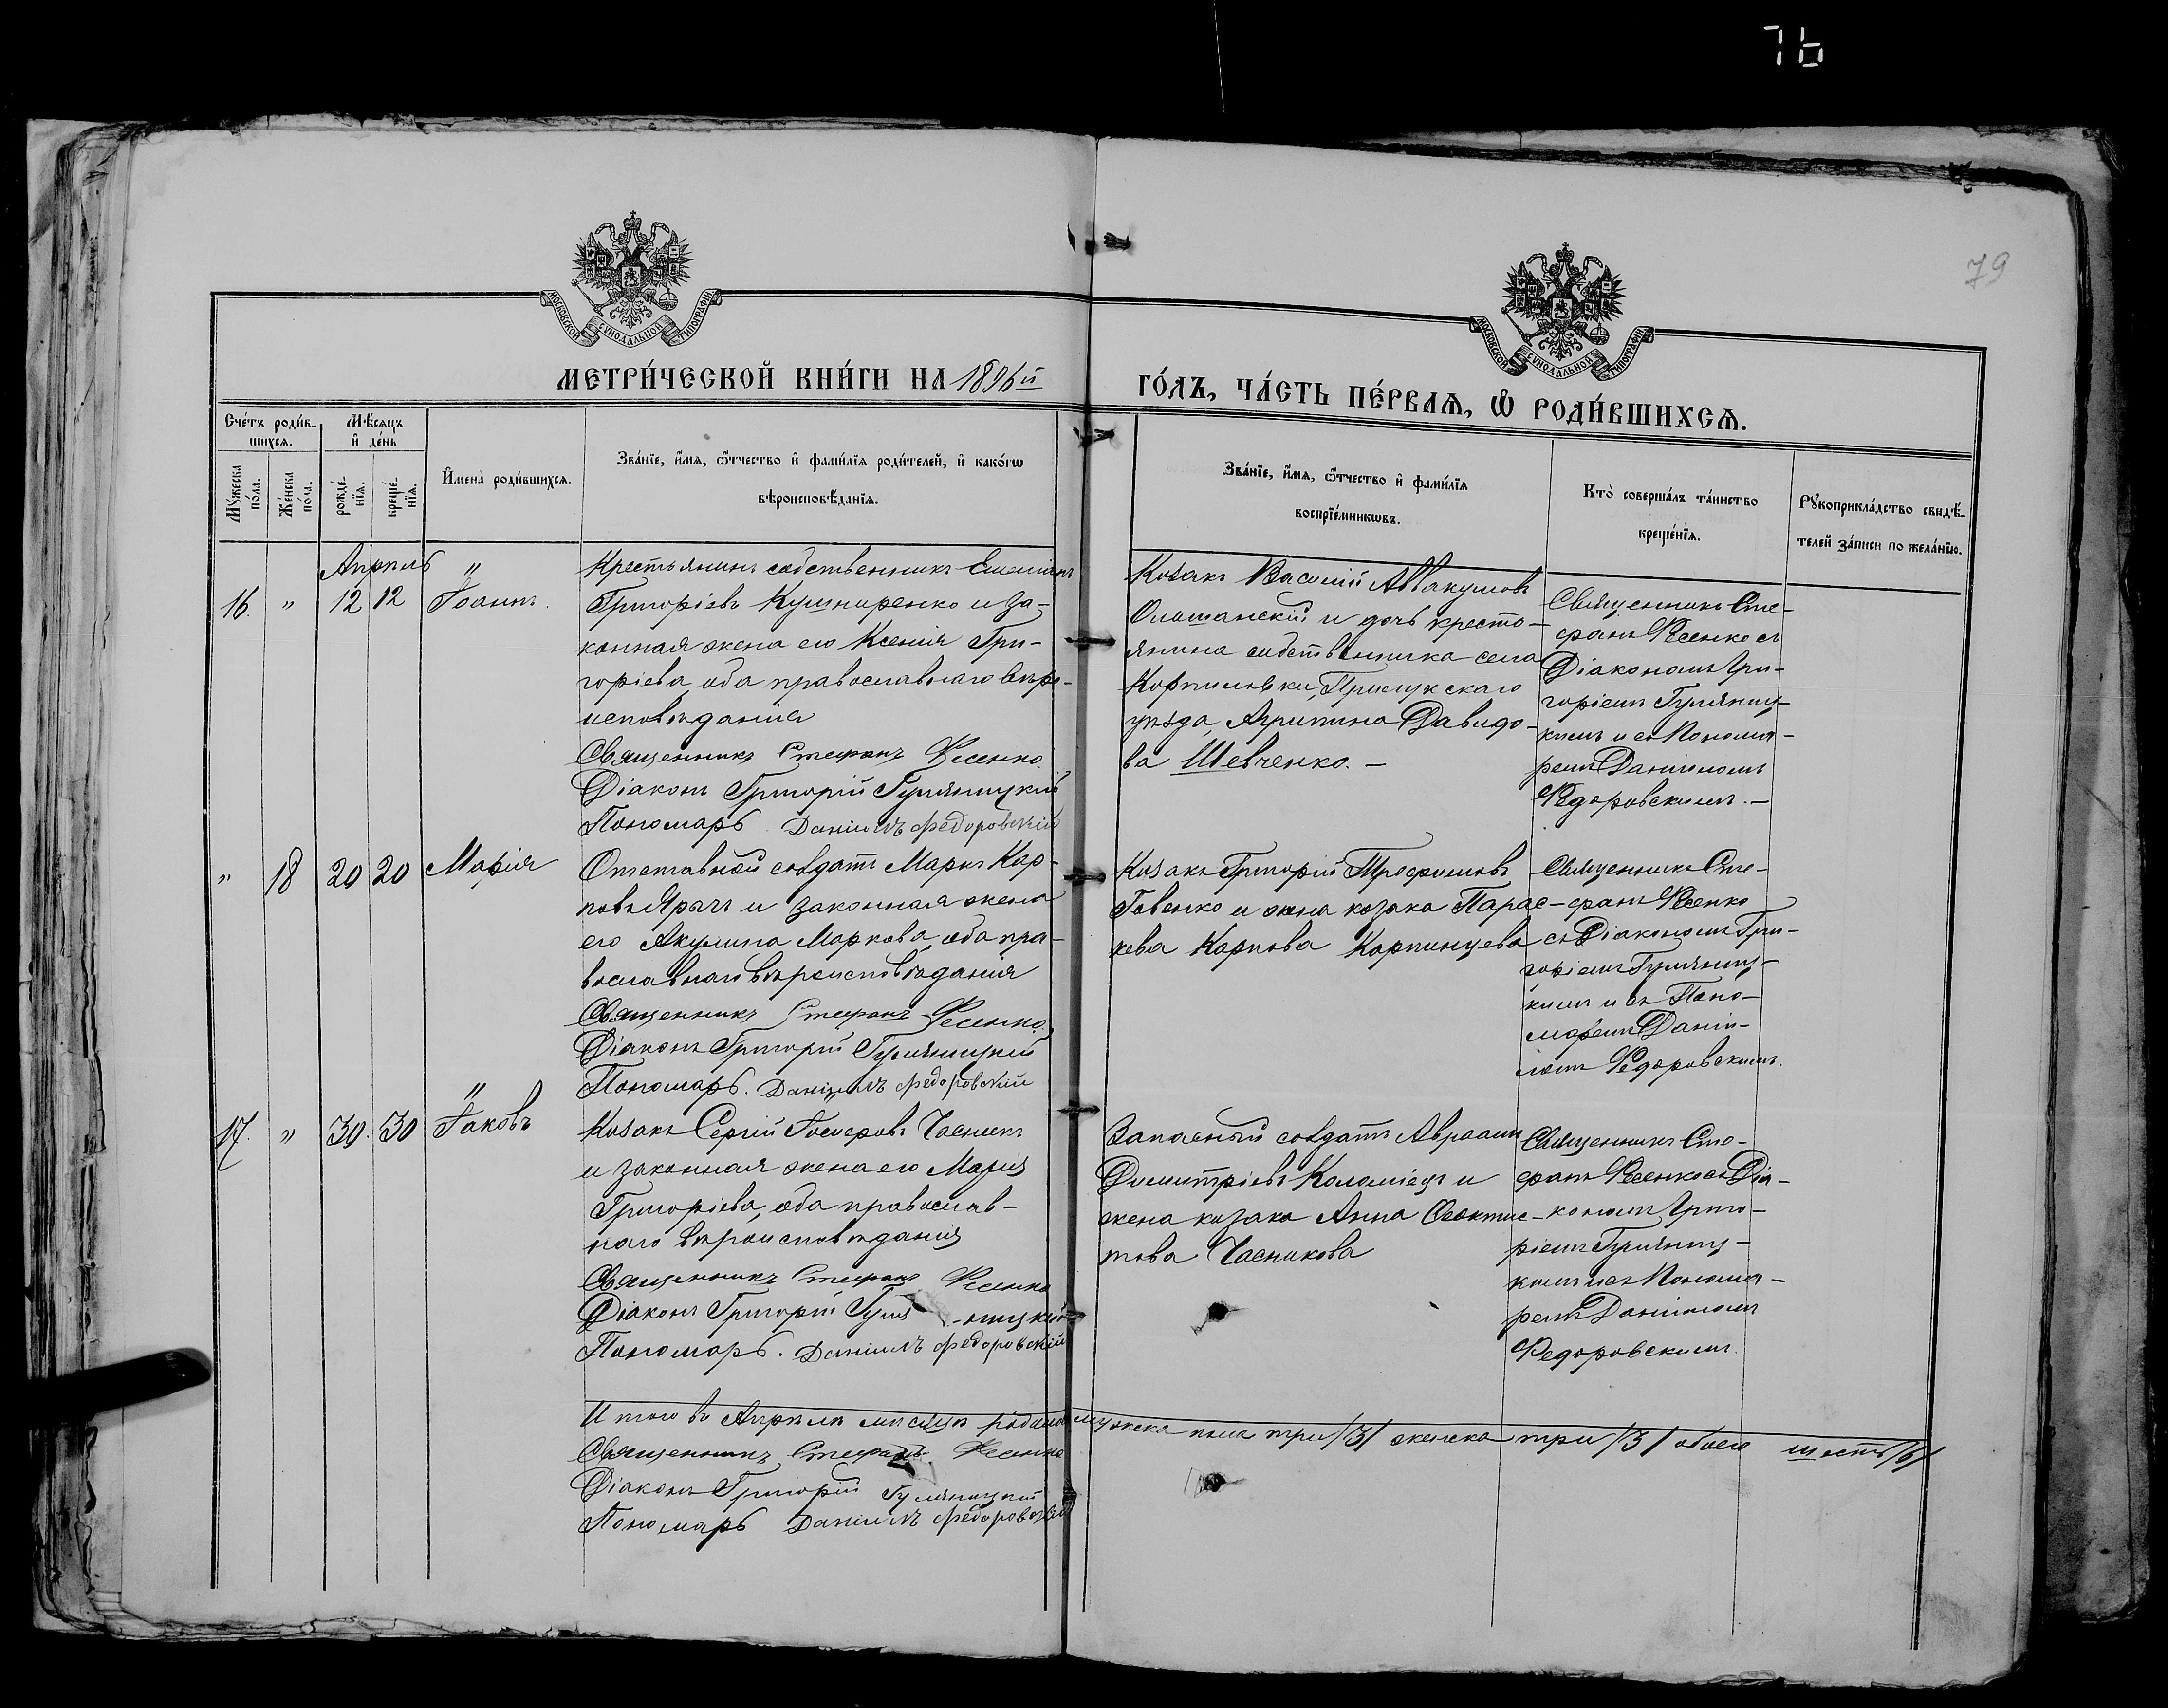 76
79
МОСКОВСКОЙ СѴНОДАЛЬНОЙ ТИПОГРАФІИ
МОСКОВСКОЙ СѴНОДАЛЬНОЙ ТИПОГРАФІИ
МЕТРИ́ЧЕСКОЙ КНИ́ГИ НА 1896й
ГО́ДЪ, ЧА́СТЬ ПЕ́РВАѦ, Ѽ РОДИ́ВШИХСѦ.
Сче́тъ роди́в-
шихсѧ.
Мѣ́сѧцъ
и҆ де́нь
Мꙋ́жеска
по́ла.
Же́нска
по́ла.
рожде́-
нїѧ.
креще́-
нїѧ.
И҆мена̀ роди́вшихсѧ.
Зва́нїе, и҆́мѧ, ѻ҆́тчество и҆ фами́лїѧ роди́телей, и҆ како́гѡ
вѣроисповѣ́данїѧ.
Зва́нїе, и҆́мѧ, ѻ҆́тчество и҆ фами́лїѧ
воспрїе́мникѡвъ.
Кто̀ соверша́лъ та́инство
креще́нїѧ.
Рꙋкоприкла́дство свидѣ́-
телей за́писи по жела́нїю.
Апрѣль
16. " 12 12 Іоаннъ.
Крестьянинъ собственникъ Емельянъ
Григоріевъ Кушниренко и за-
конная жена его Ксенія Гри-
горіева, оба православнаго вѣро-
исповѣданія
Священникъ Стефанъ Фесенко
Діаконъ Григорій Гуляницкій
Пономарь Даніилъ Федоровскій
Козакъ Василій Аввакумовъ
Ольшанскій и дочь кресть-
янина собственника села
Корниловки, Прилукскаго
уѣзда, Агрипина Давидо-
ва Шевченко. —
Священникъ Сте-
фанъ Фесенко съ
Діакономъ Гри-
горіемъ Гуляниц-
кимъ и съ Понома-
ремъ Даніиломъ
Федоровскимъ. —
" 18 20 20 Марія
Отставной солдатъ Маркъ Кар-
повъ Ярычъ и законная жена
его Акулина Маркова, оба пра-
вославнаго вѣроисповѣданія
Священникъ Стефанъ Фесенко
Діаконъ Григорій Гуляницкій
Пономарь. Даніилъ Федоровскій
Козакъ Григорій Трофимовъ
Говенко и жена козака Парас-
кева Карпова Карпинцева
Священникъ Сте-
фанъ Фесенко
съ Діакономъ Гри-
горіемъ Гуляниц-
кимъ и съ Поно-
маремъ Дани-
ломъ Федоровскимъ.
17. " 30. 30 Іаковъ
Козакъ Сергій Іосифовъ Часникъ
и законная жена его Марія
Григоріева, оба православ-
наго вѣроисповѣданія
Священникъ Стефанъ Фесенко
Діаконъ Григорій Гуля-ницкій
Пономарь. Даніилъ Федоровскій
Запасный солдатъ Авраамъ
Димитріевъ Коломіецъ и
жена козака Анна Феоктис-
това Часникова
Священникъ Сте-
фанъ Фесенко съ Діа-
кономъ Григо-
ріемъ Гуляниц-
кимъ и съ Понома-
ремъ Даніиломъ
Федоровскимъ.
Итого въ Апрѣлѣ мѣсяцѣ родилось мужска пола три /3/ женска три /3/ обоего шесть /6/
Священникъ Стефанъ Фесенко
Діаконъ Григорій Гуляницкій
Пономарь Даніилъ Федоровскій